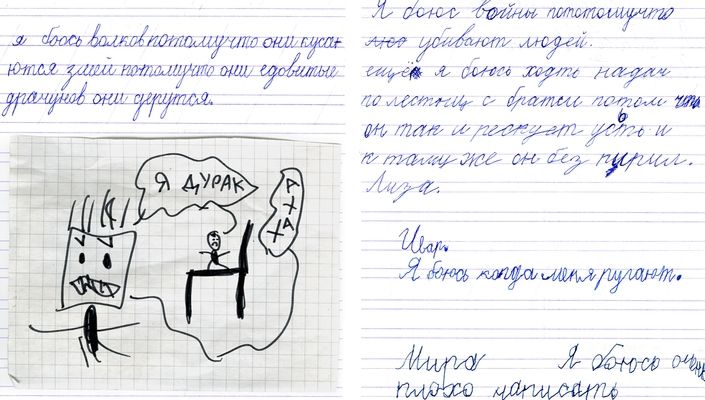 я боюсь волков потомучто они кусаи
ются змей потомучто они едовитые
драчунов они дерутся.
Я ДУРАК
АХАХ
Я боюс войны пототомучто
убивают людей.
ещё я боюсь ходть на дач
по лестниц с братьи потом что
он так и рескует усть и
к тамуже он без пирил.
Лиза.
Ивар.
Я боюсь когда меня ругают.
Мира Я боюсь очень
плохо написать